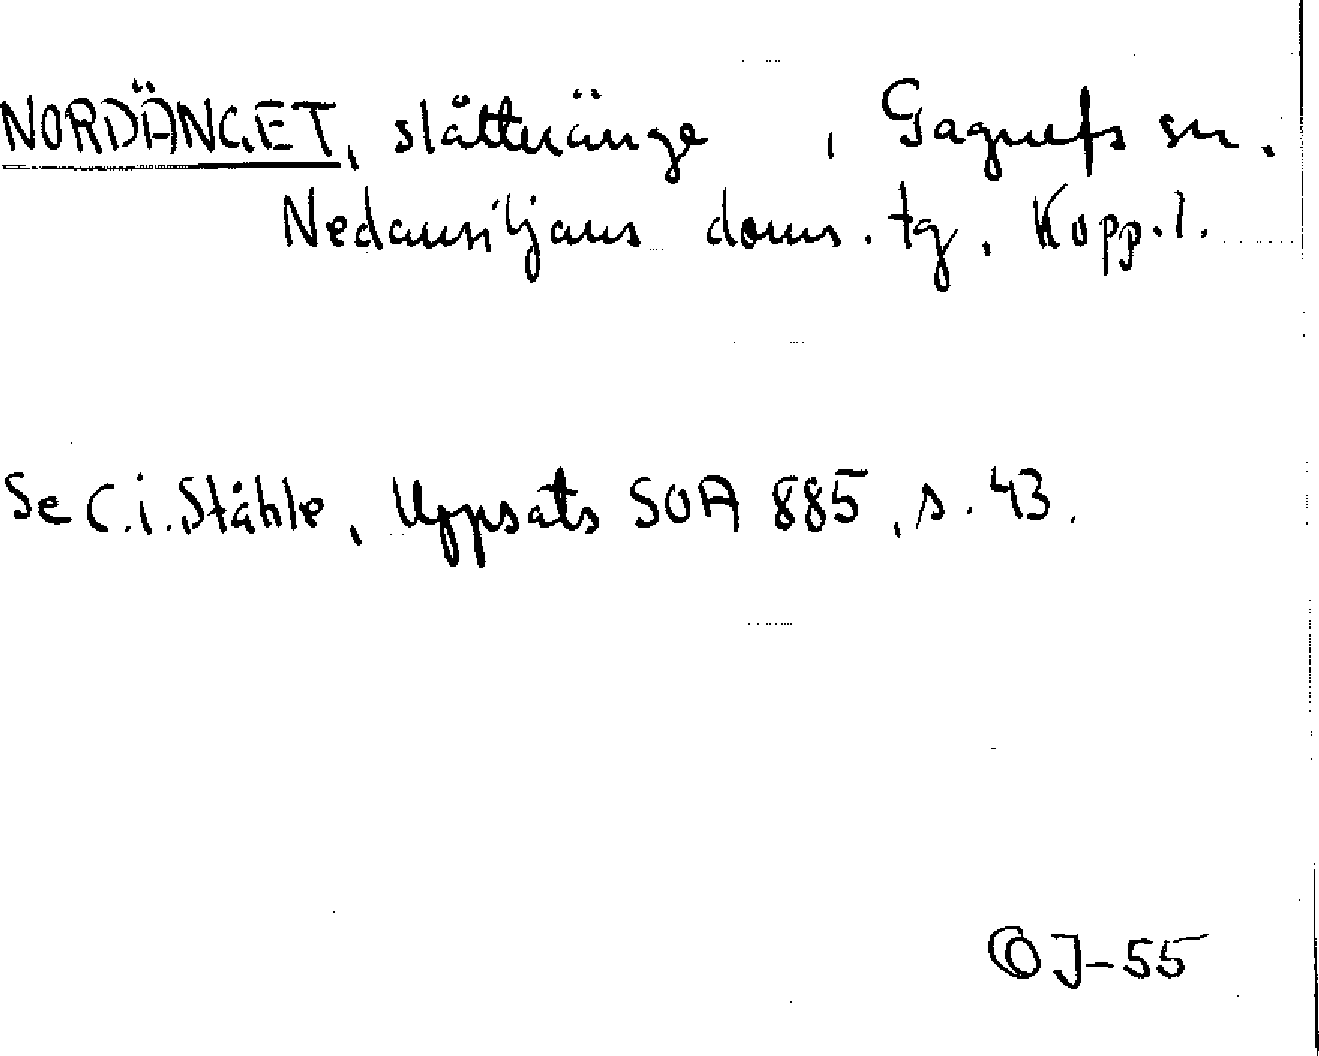 NORDÄNGET, slåtteränge , Gagnefs sn.
Nedansiljans doms. tg, Kopp. l.
Se C.i. Ståhle, Uppsats SOA 885, s. 43.
OJ-55